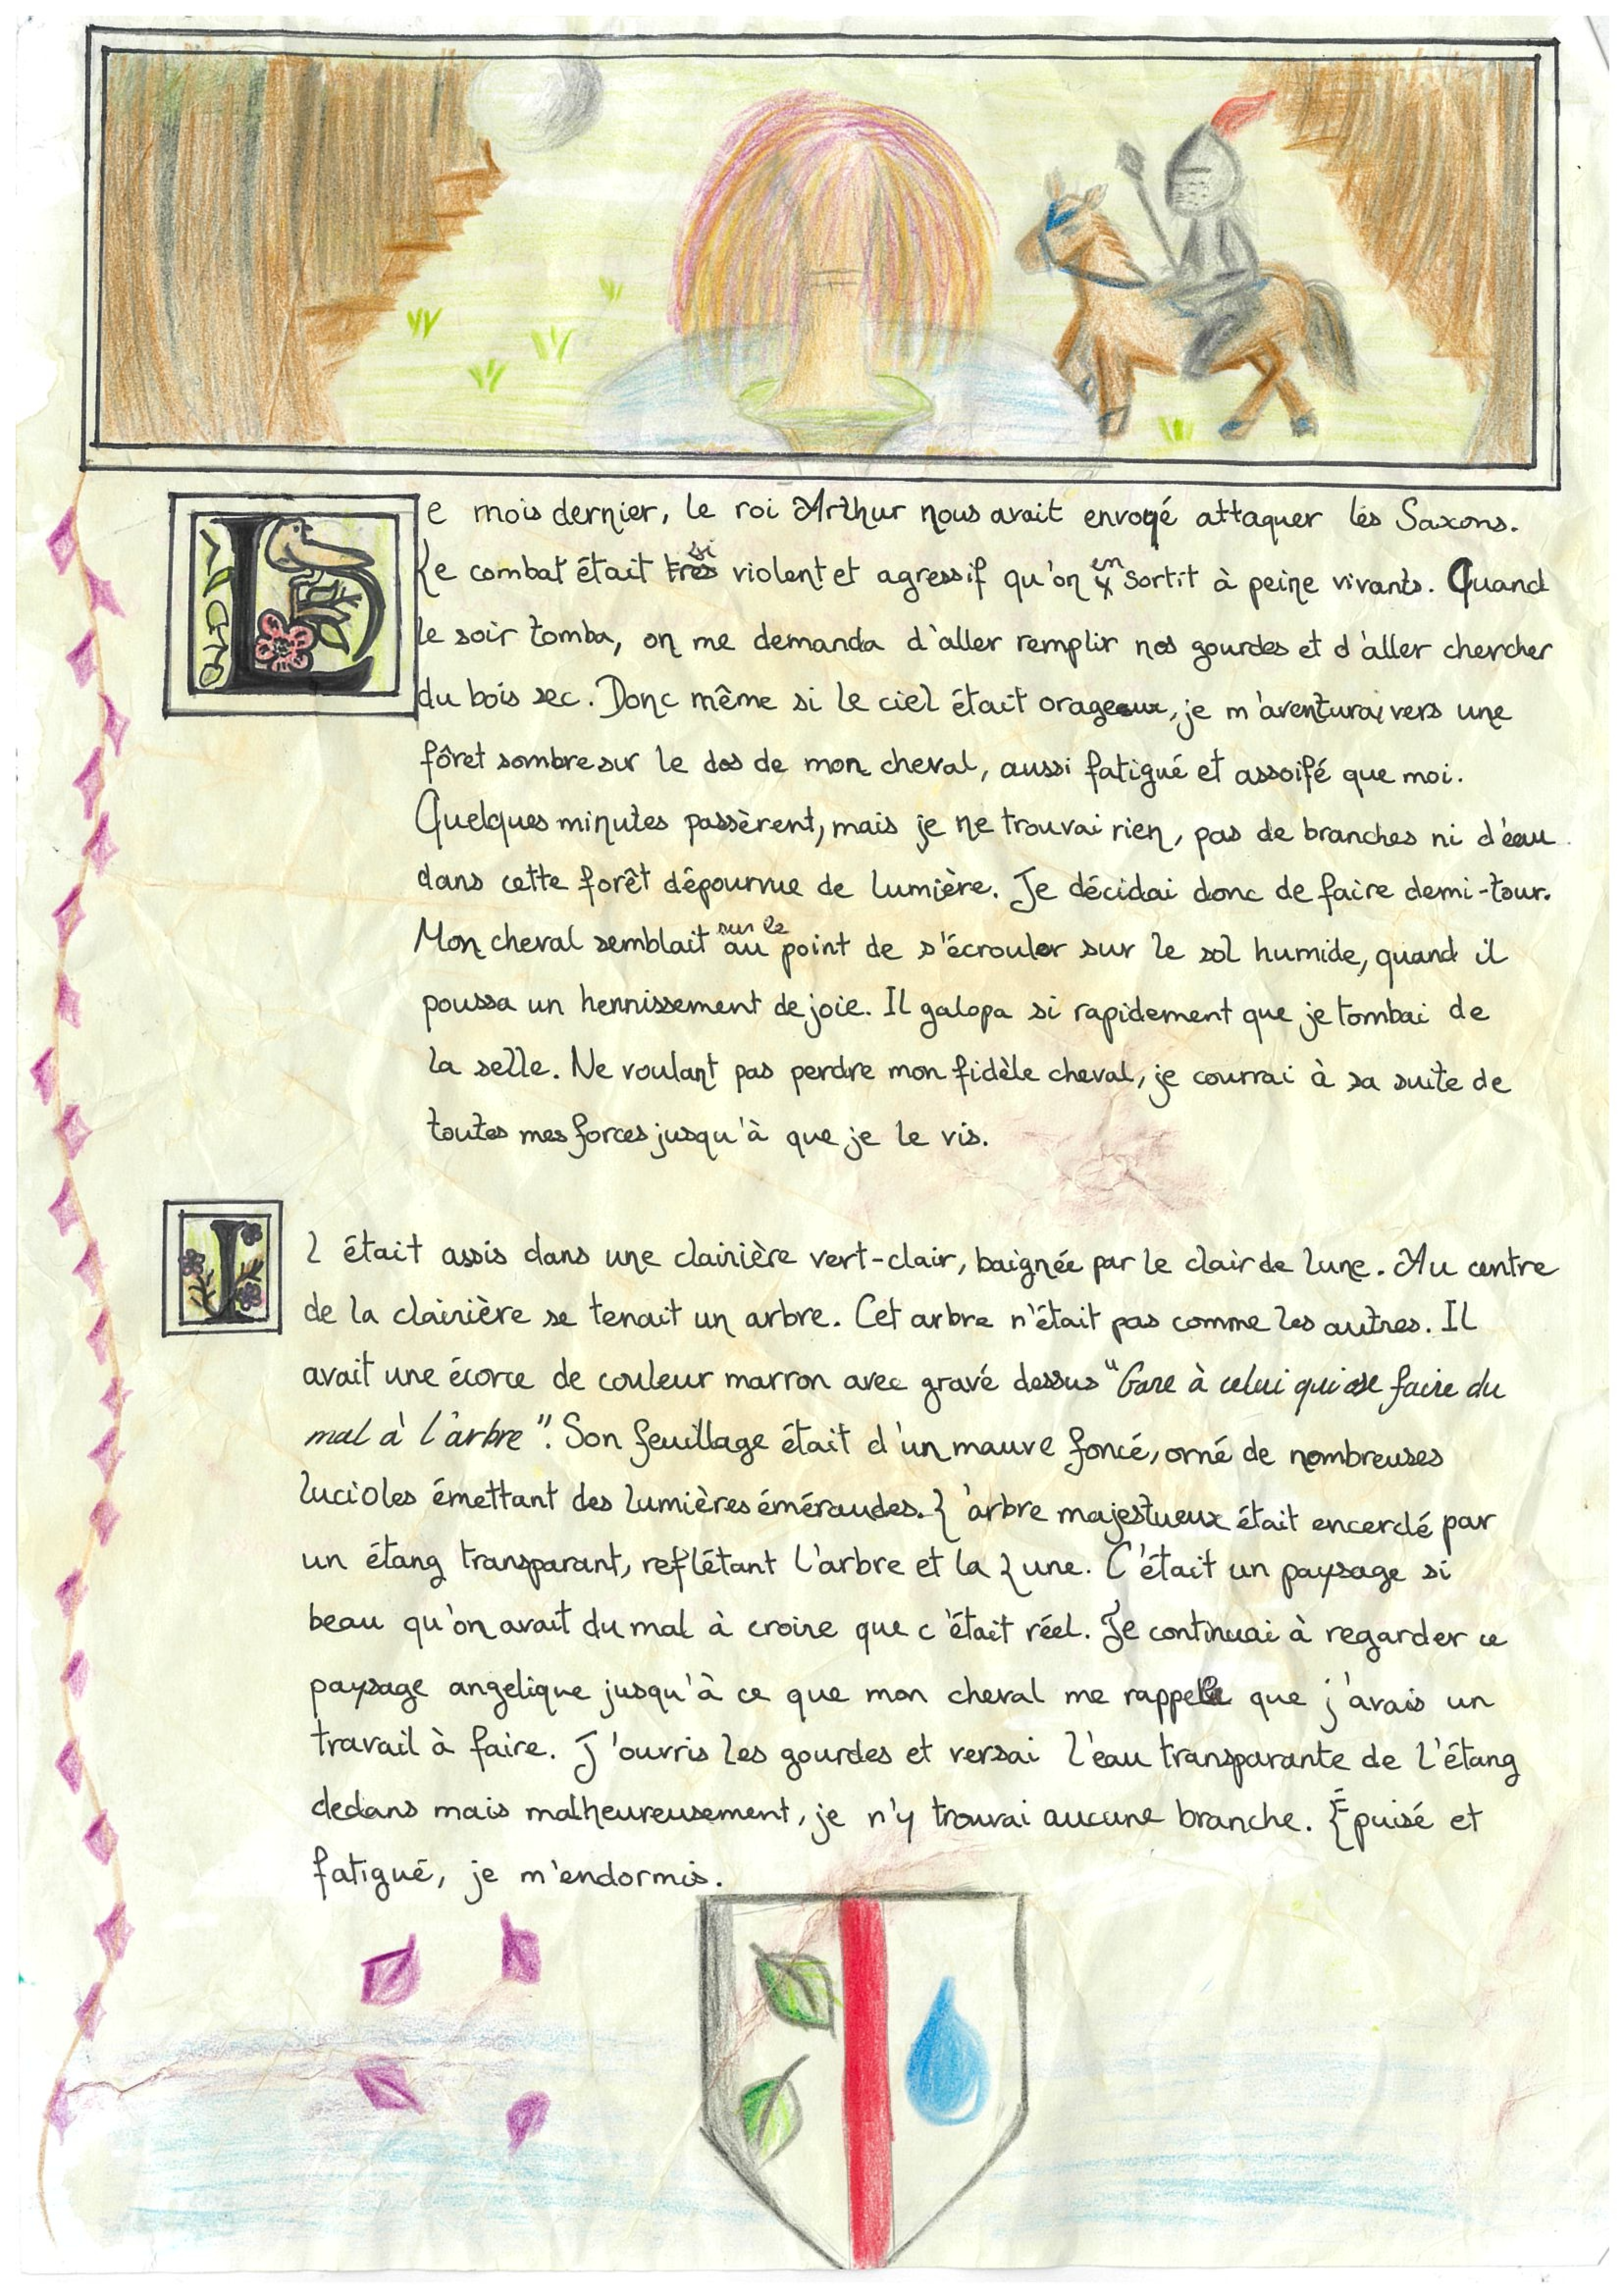 Le mois dernier, le roi Arthur nous avait envoyé attaquer les Saxons.
Le combat était très si violent et agressif qu'on y en sortit à peine vivants. Quand
le soir tomba, on me demanda d'aller remplir nos gourdes et d'aller chercher
du bois sec. Donc même si le ciel était orageux, je m'aventurai vers une
fôret sombre sur le dos de mon cheval, aussi fatigué et assoifé que moi.
Quelques minutes passèrent, mais je ne trouvai rien, pas de branches ni d'eau
dans cette forêt dépourvue de lumière. Je décidai donc de faire demi-tour.
Mon cheval semblait au sur le point de s'écrouler sur le sol humide, quand il
poussa un hennissement de joie. Il galopa si rapidement que je tombai de
la selle. Ne voulant pas perdre mon fidèle cheval, je courrai à sa suite de
toutes mes forces jusqu'à que je le vis.
Il était assis dans une clairière vert-clair, baignée par le clair de lune. Au centre
de la clairière se tenait un arbre. Cet arbre n'était pas comme les autres. Il
avait une écorce de couleur marron avec gravé dessus "Gare à celui qui ose faire du
mal à l'arbre". Son feuillage était d'un mauve foncé, orné de nombreuses
lucioles émettant des lumières éméraudes. L'arbre majestueux était encerclé par
un étang transparant, reflétant l'arbre et la Lune. C'était un paysage si
beau qu'on avait du mal à croire que c'était réel. Je continuai à regarder ce
paysage angelique jusqu'à ce que mon cheval me rappelle que j'avais un
travail à faire. J'ouvris les gourdes et versai l'eau transparante de l'étang
dedans mais malheureusement, je n'y trouvai aucune branche. Épuisé et
fatigué, je m'endormis.